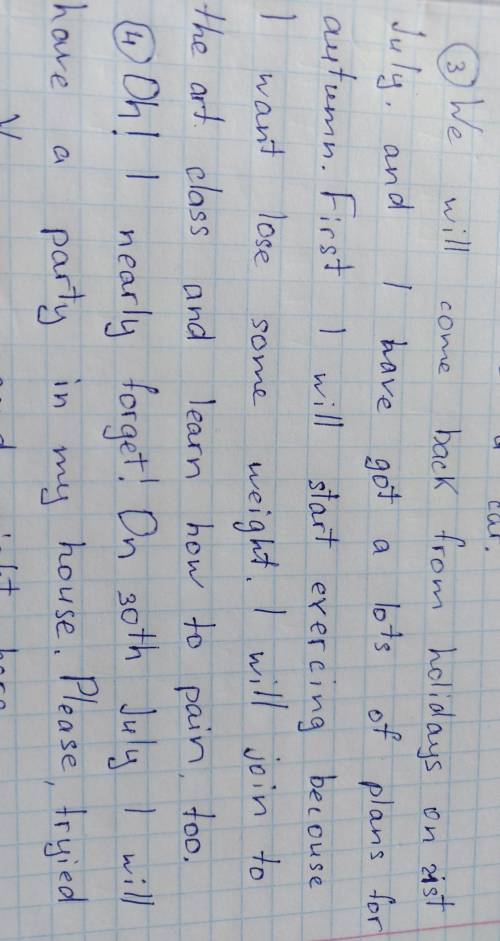 a car.
③ We will come back from holidays on 21st
July. and I have got a lots of plans for
autumn. First I will start exercing becouse
I want lose some weight. I will join to
the art class and learn how to pain, too.
④ Oh! I nearly forget! On 30th July I will
have a party in my house. Please, tryied